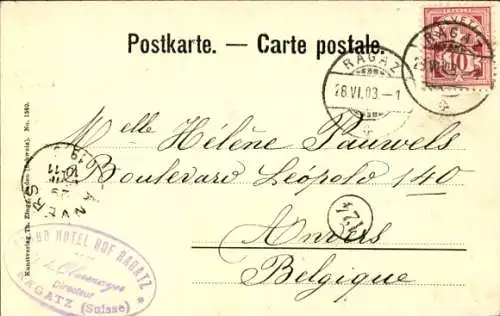 Postkarte. — Carte postale.
RAGAZ
28.VI.03.—1
RAGAZ
HELVETIA
10
Melle Hélène Pauwels
Boulevard Léopold 140
Anvers
Belgique
ANVERS
GRAND HOTEL HOF RAGATZ
Directeur
RAGATZ (Suisse)
Kunstverlag Th. Zingg, Baden (Schweiz). No. 1560.